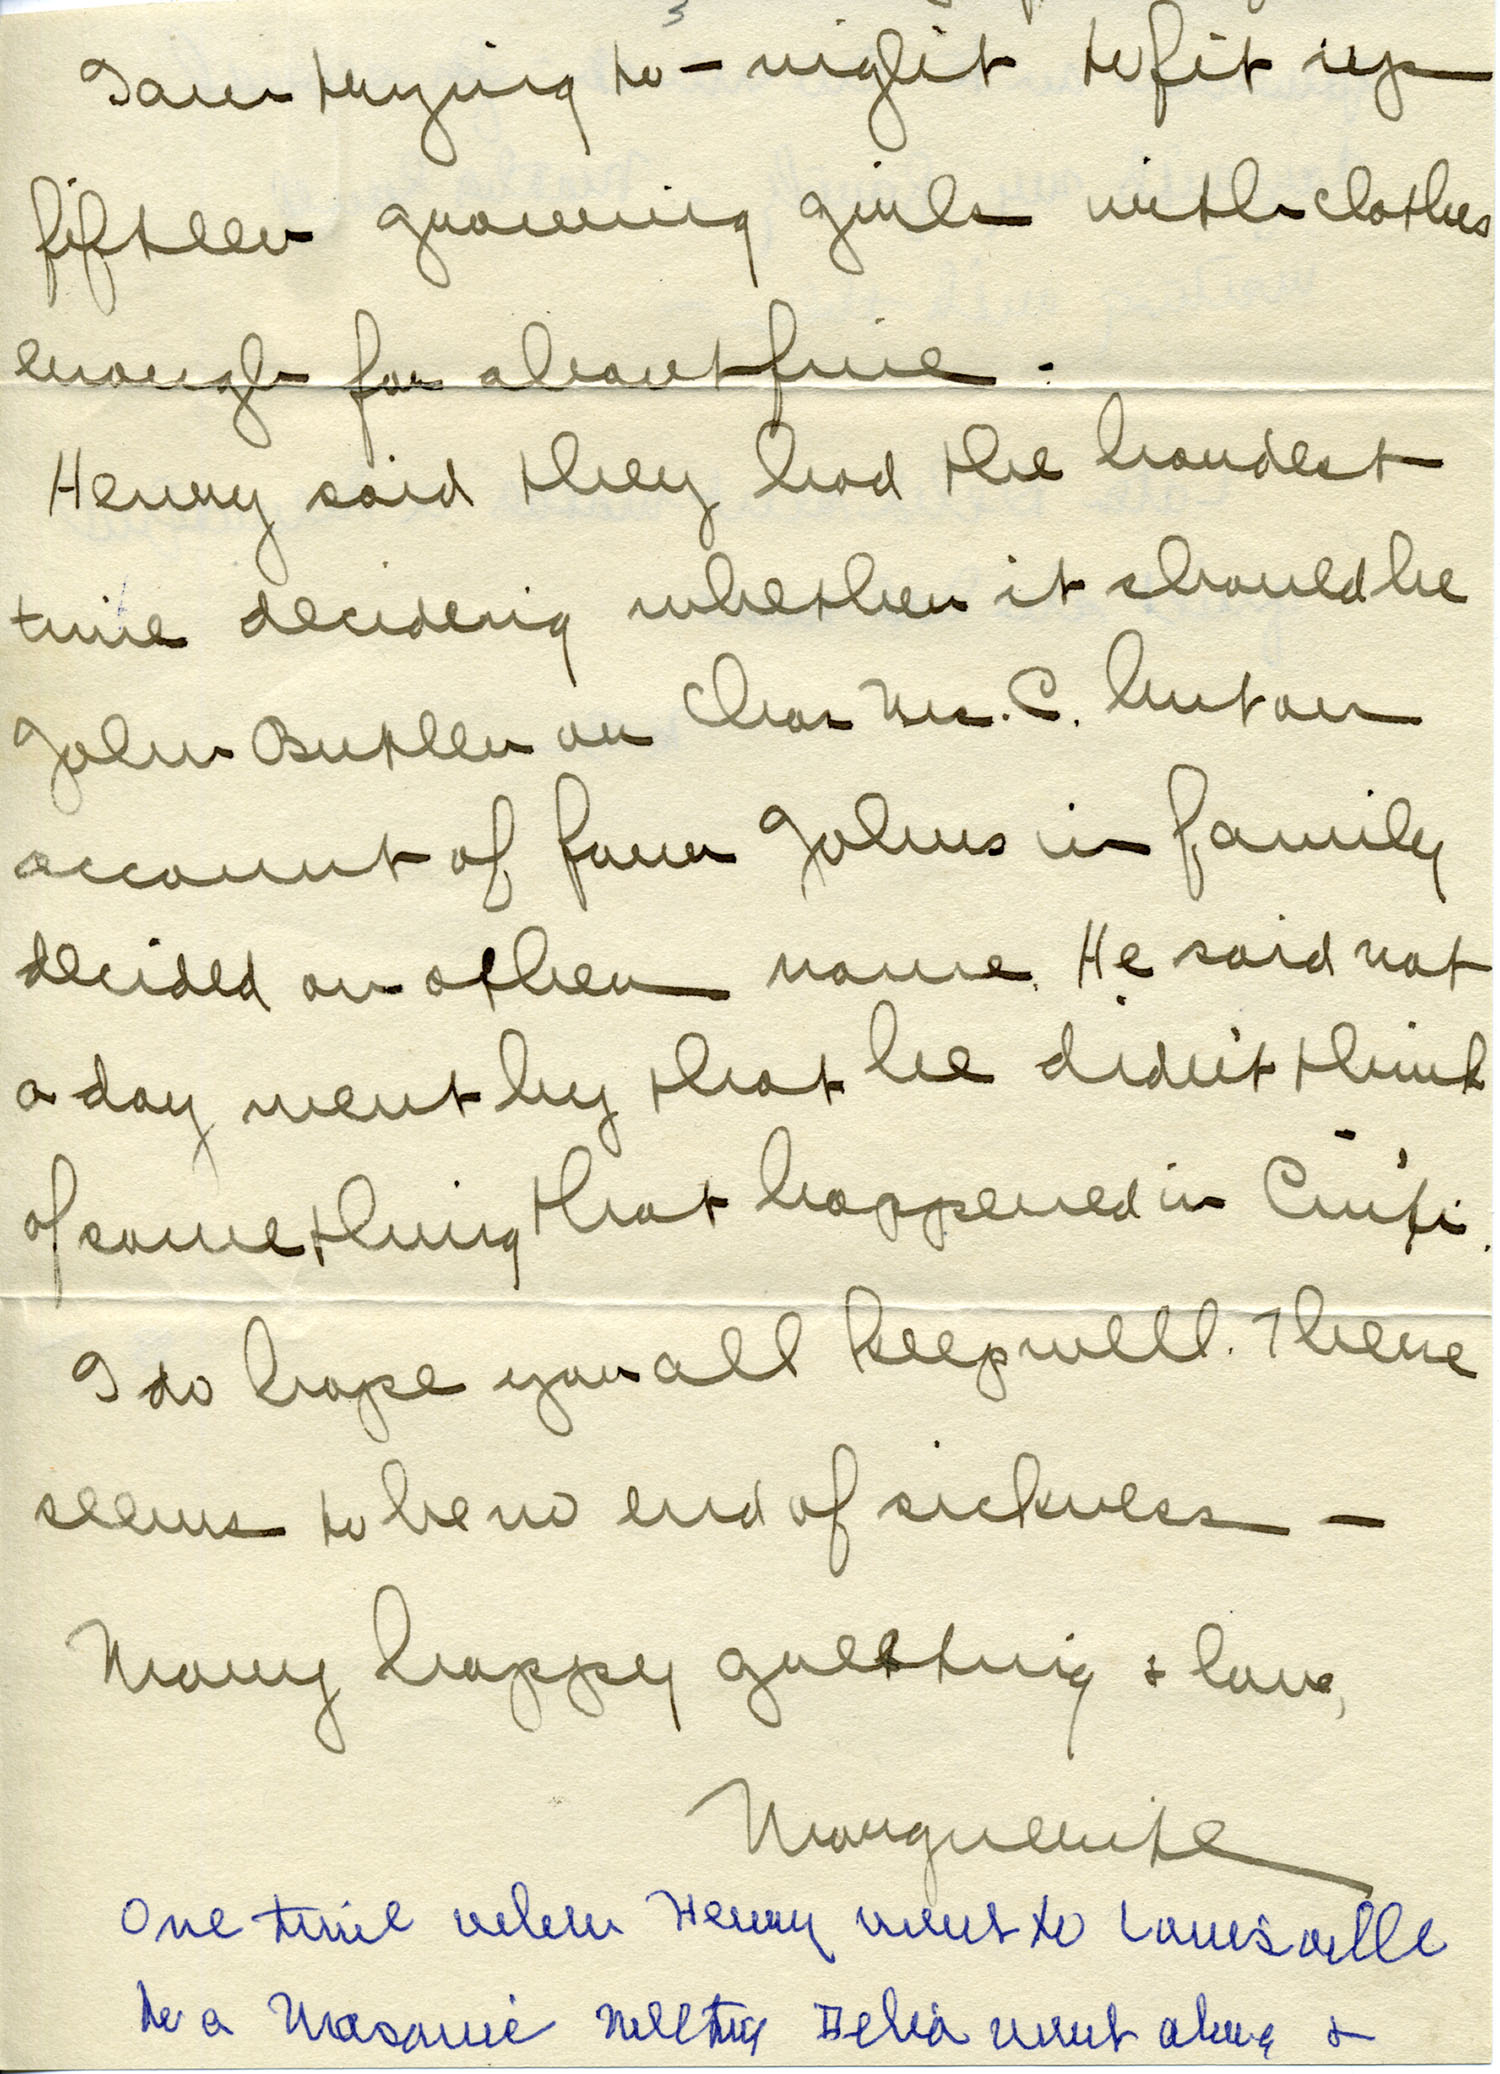 3
I am trying to-night to fit up
fifteen growing girls with clothes
enough for about five.
Henry said they had the hardest
time deciding whether it should be
John Butler or Chas Mc. C. but on
account of four Johns in family
decided on other name. He said not
a day went by that he didn't think
of something that happened in Cinti.
I do hope you all keep well. There
seems to be no end of sickness —
Many happy greeting & love,
Marguerite
One time when Henry went to Louisville
to a Masonic meeting Delia went along &